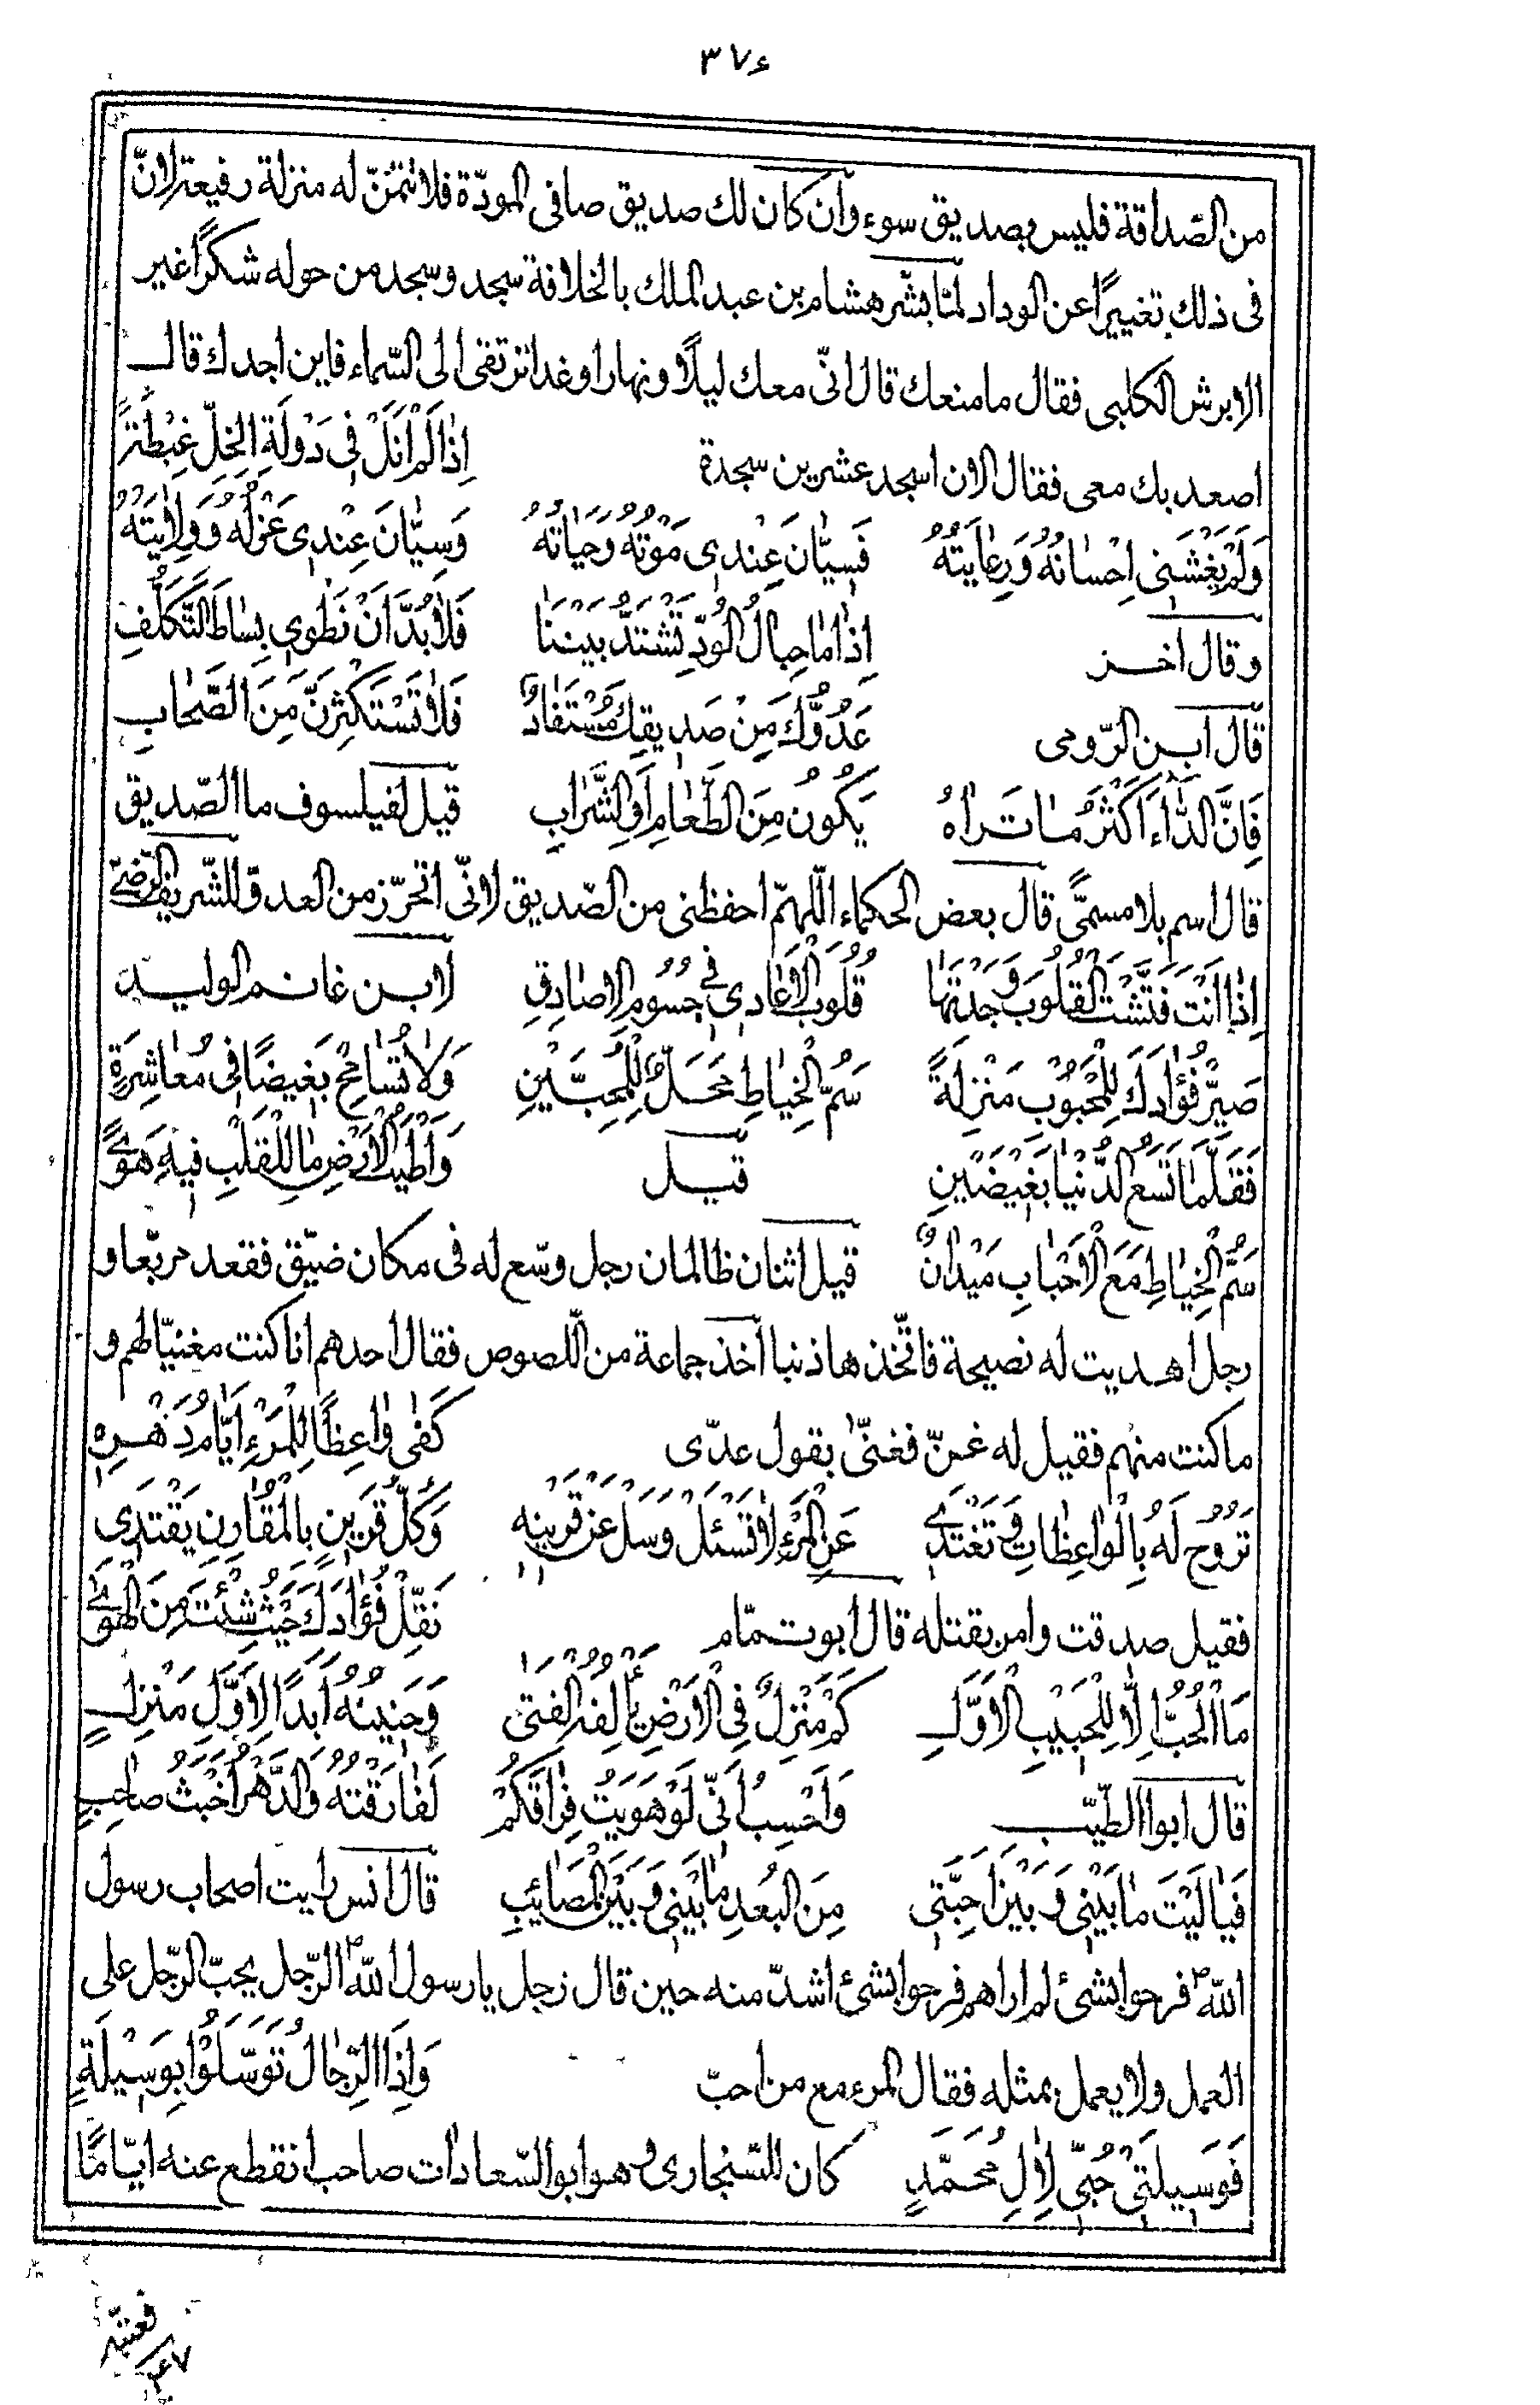 ٣٧٤
من الصّداقة فليس بصديق سوء وان كان لك صديق صافى المودّة فلا تتمنّ له منزلة رفيعة لانّ
فى ذلك تغييرًا عن الوداد لمّا بشّر هشام بن عبد الملك بالخلافة سجد وسجد من حوله شكرًا غير
الابرش الكلبى فقال ما منعك قال انّى معك ليلًا ونهارا وغدا ترتقى الى السّماء فاين اجدك قال
اصعد بك معى فقال الان اسجد عشرين سجدة اِذٰا لَمْ اَنَلْ فِى دَوْلَةِ الْخِلِّ غِبْطَةً
وَلَمْ يَغْشَنِى اِحْسٰانُهُ وَرِعٰايَتُهُ فَسِيّٰانَ عِنْدِى مَوْتُهُ وَحَيٰاتُهُ وَسِيّٰانَ عِنْدِى عَزْلُهُ وَوِلٰايَتُهُ
وقال اخر اِذٰا مٰا حِبٰالُ الْوُدِّ تَشْتَدُّ بَيْنَنٰا فَلٰا بُدَّ اَنْ نَطْوِى بِسٰاطَ التَّكَلُّفِ
قال ابن الرّومى عَدُوُّكَ مِنْ صَدِيقِكَ مُسْتَفٰادٌ فَلٰا تَسْتَكْثِرَنَّ مِنَ الصِّحٰابِ
فَاِنَّ الدّٰاءَ اَكْثَرُ مٰا تَرٰاهُ يَكُونُ مِنَ الطَّعٰامِ اَوِ الشَّرٰابِ قيل لفيلسوف ما الصّديق
قال اسم بلا مسمىًّ قال بعض الحكماء اللّهمّ احفظنى من الصّديق لانّى اتحرّز من العدوّ للشّريف الرّضىّ
اِذٰا اَنْتَ فَتَّشْتَ الْقُلُوبَ وَجَدْتَهٰا قُلُوبَ الْاَعٰادِى فِى جُسُومِ الْاَصٰادِقِ لابن غانم الوليد
صَيِّرْ فُؤٰادَكَ لِلْمَحْبُوبِ مَنْزِلَةً سَمُّ الْخِيٰاطِ مَحَلٌّ لِلْمُحِبَّيْنِ وَلٰا تُسٰامِحْ بَغِيضًا فِى مُعٰاشَرَةٍ
فَقَلَّمٰا تَسَعُ الدُّنْيٰا بَغِيضَيْنِ قيل وَاَطْيَبُ الْاَرْضِ مٰا لِلْقَلْبِ فِيهِ هَوىً
سَمُّ الْخِيٰاطِ مَعَ الْاَحْبٰابِ مَيْدٰانٌ قيل اثنان ظالمان رجل وسّع له فى مكان ضيّق فقعد مربّعا و
رجل اهديت له نصيحة فاتّخذها ذنبا اخذ جماعة من اللّصوص فقال احدهم انا كنت مغنيّا لهم و
ما كنت منهم فقيل له غنّ فغنىّ بقول عدّى كَفٰى وٰاعِظًا لِلْمَرْءِ اَيّٰامُ دَهْرِهِ
تَرُوحُ لَهُ بِالْوٰاعِظٰاتِ وَتَغْتَدِى عَنِ الْمَرْءِ لٰا تَسْئَلْ وَسَلْ عَنْ قَرِينِهِ وَكُلُّ قَرِينٍ بِالْمُقٰارِنِ يَقْتَدِى
فقيل صدقت وامر بقتله قال ابو تمّام نَقِّلْ فُؤٰادَكَ حَيْثُ شِئْتَ مِنَ الْهَوىٰ
مَا الْحُبُّ اِلّٰا لِلْحَبِيبِ الْاَوَّلِ كَمْ مَنْزِلٌ فِى الْاَرْضِ يَأْلِفُهُ الْفَتىٰ وَحَنِينُهُ اَبَدًا لِاَوَّلِ مَنْزِلٍ
قال ابوا الطيّب وَاَحْسِبُ اَنِّى لَوْ هَوِيتُ فِرٰاقَكُمْ لَفٰارَقْتُهُ وَالدَّهْرُ اَخْبَثُ صٰاحِبٍ
فَيٰا لَيْتَ مٰا بَيْنِى وَبَيْنَ اَحِبَّتِى مِنَ الْبُعْدِ مٰا بَيْنِى وَبَيْنَ الْمَصٰائِبِ قال انس رايت اصحاب رسول
اللّه ص فرحوا بشئ لم اراهم فرحوا بشئ اشدّ منه حين قال رجل يا رسول اللّه ص الرّجل يحبّ الرّجل على
العمل ولا يعمل بمثله فقال المرء مع من احبّ وَاِذَا الرِّجٰالُ تَوَسَّلُوْا بِوَسِيْلَةٍ
فَوَسِيلَتِى حُبِّى لِاٰلِ مُحَمَّدٍ كان للسّنجارى وهو ابو السّعادات صاحب انقطع عنه ايّامًا